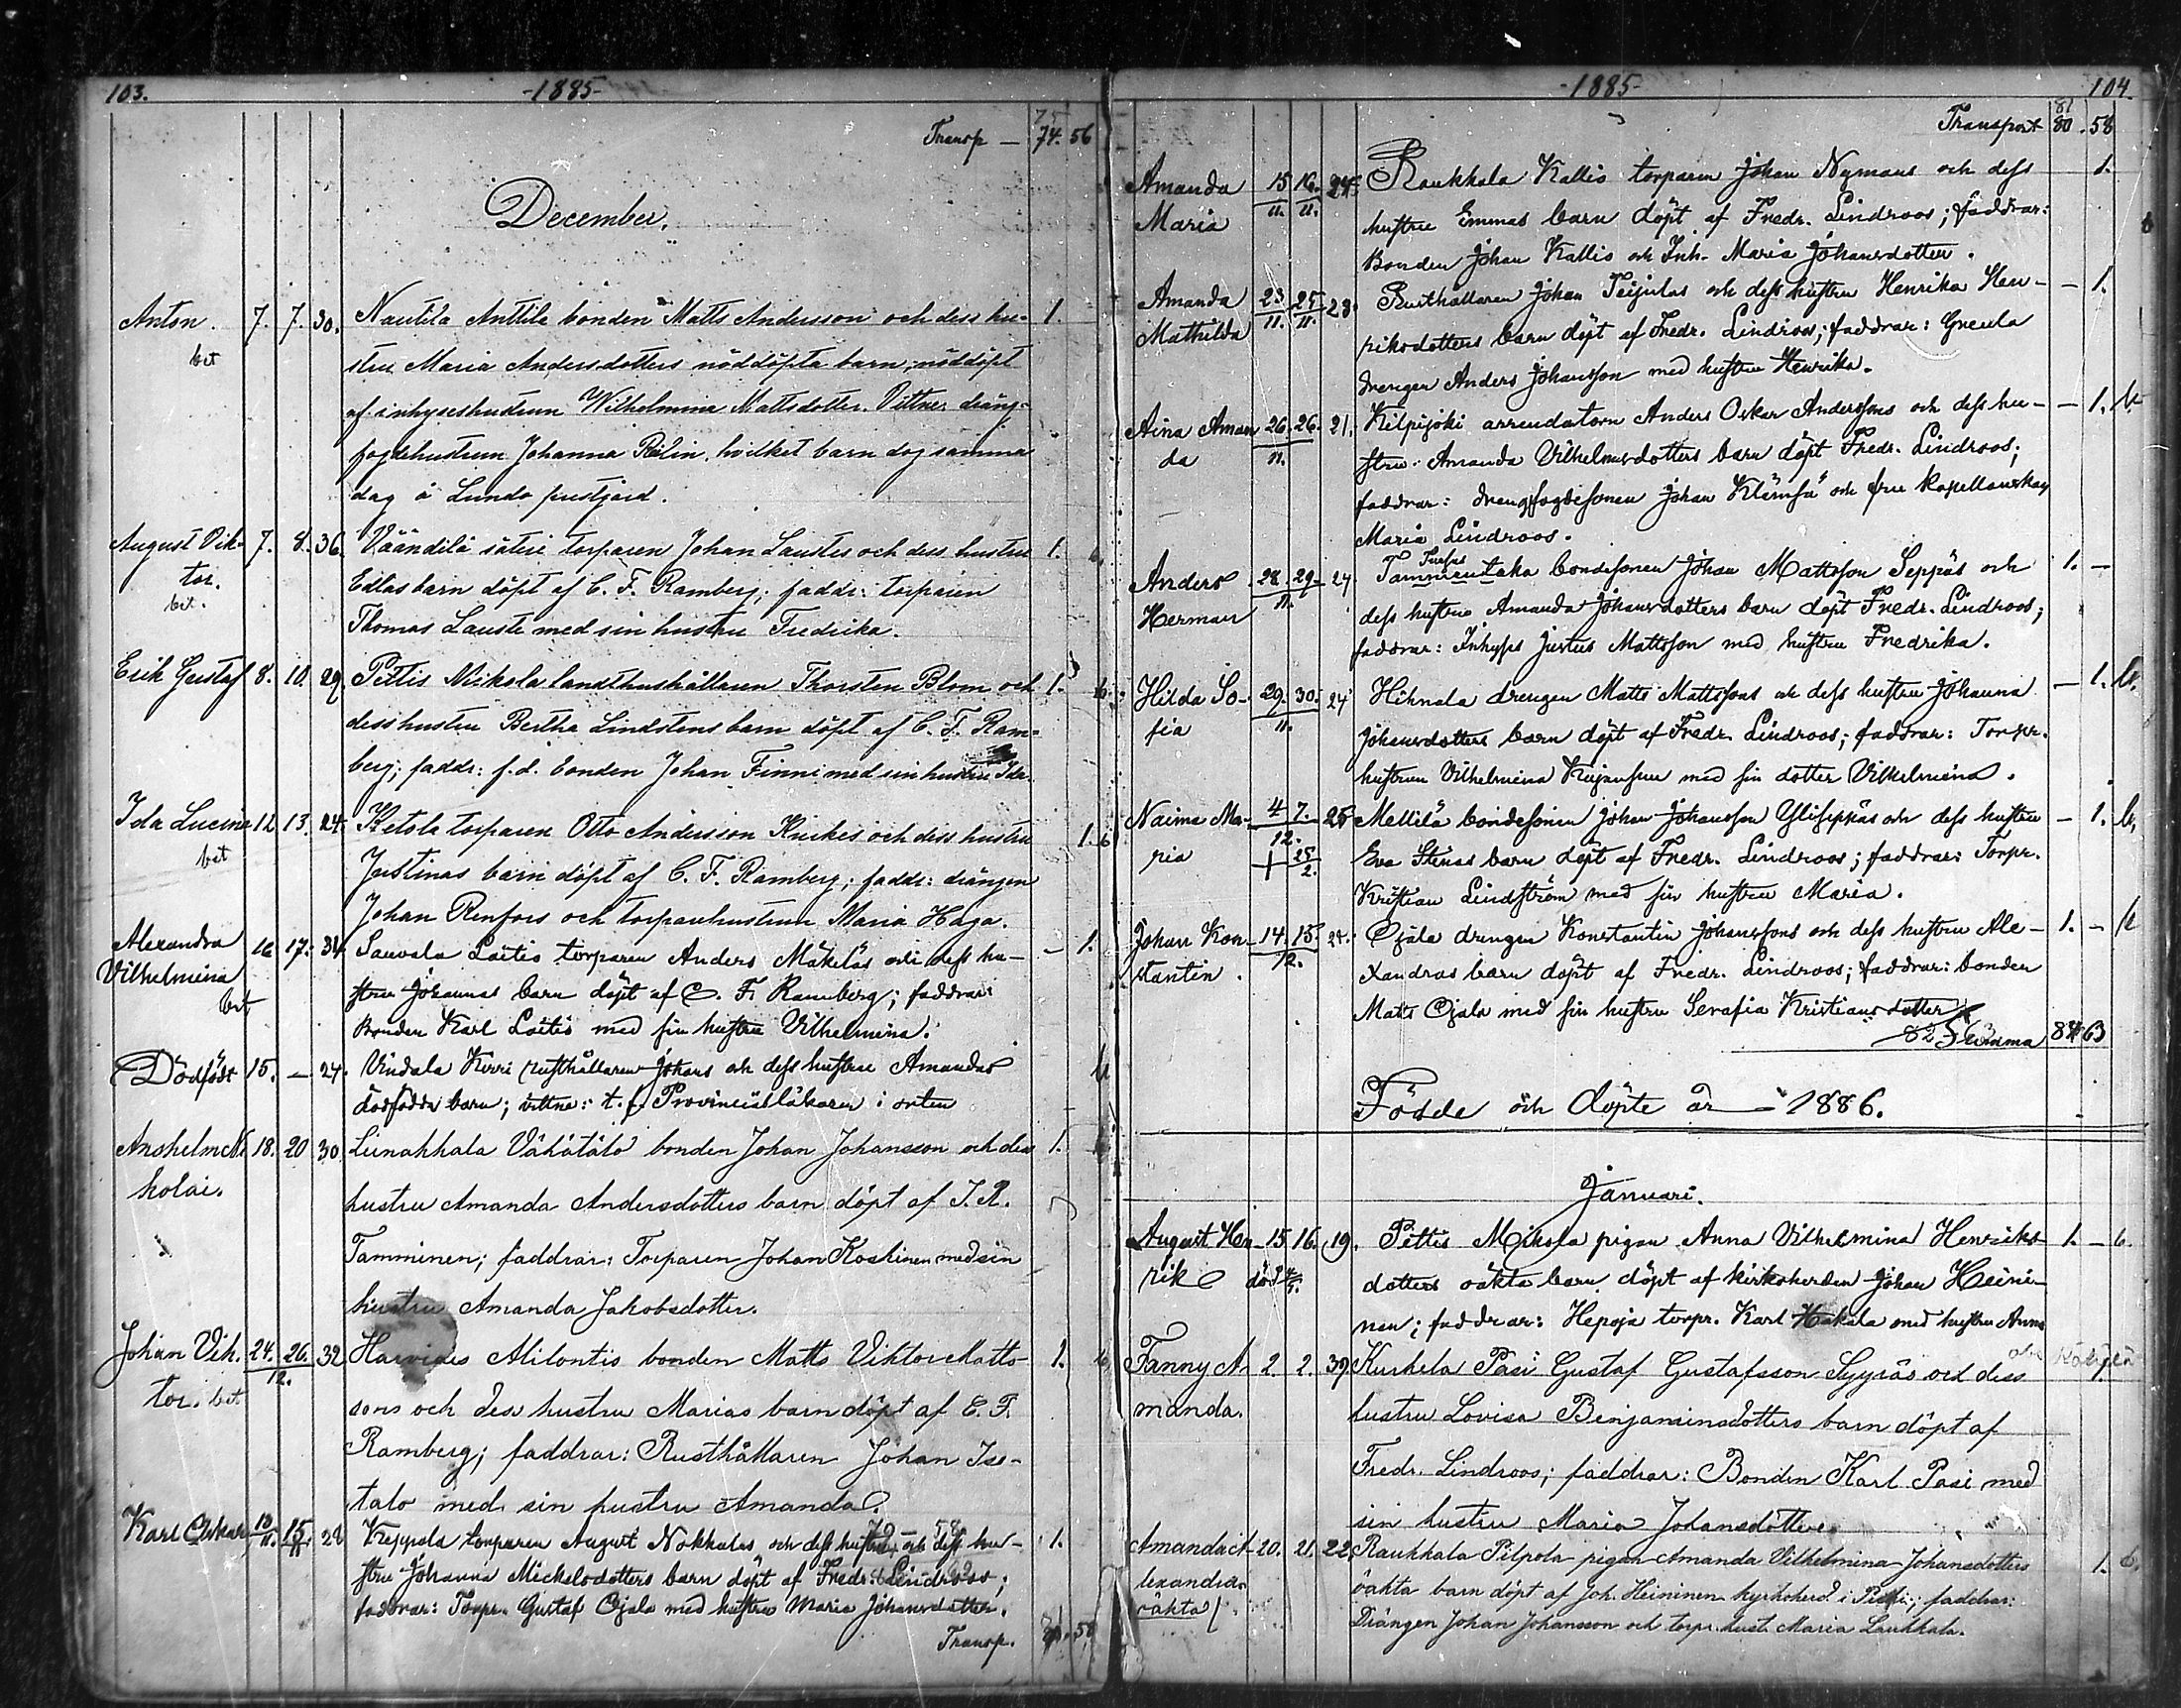 103.
-1885-
75
Transp — 74. 56
December.
Anton. 7. 7. 30. Nautila Anttila bonden Matts Andersson och dess hu- 1.
bet stru Maria Andersdotters nöddöpta barn; nöddöpt
af inhyseshustrun Wilhelmina Mattsdotter. Vittne: dräng-
fogdehustrun Johanna Relin, hvilket barn dog samma
dag å Lundo prestgård.
August Vik- 7. 8. 36. Väändilä säteri torparen Johan Laustes och dess hustru 1. b.
tor. Edlas barn döpt af C. F. Ramberg; faddr: torparen
bet. Thomas Lauste med sin hustru Fredrika.
Erik Gustaf 8. 10. 29. Pettis Mikola landthushållaren Thorsten Blom och 1. b.
dess hustru Bertha Lindstens barn döpt af C. F. Ram-
berg; faddr: f.d. bonden Johan Finni med sin hustru Ida.
Ida Lucina 12 13. 24. Ketola torparen Otto Andersson Knikes och dess hustru 1. b
bet Justinas barn döpt af C. F. Ramberg; faddr: drängen
Johan Renfors och torparehustrun Maria Haga.
Alexandra 16 17. 34 Sauvala Loitis torparen Anders Mäkeläs och dess hu- – 1.
Vilhelmina stru Johannas barn döpt af C. F. Ramberg; faddrar:
bet Bonden Karl Loitis med sin hustru Vilhelmina.
Dödfödt 15. — 24. Vindala Kirri rusthållaren Johans och dess hustru Amandas b
dödfödda barn; vittne: t.f. Provincialläkaren i orten
Anshelm Ni 18. 20 30. Liinakkala Vähätalo bonden Johan Johansson och dess 1. b
kolai. hustru Amanda Andersdotters barn döpt af J. R.
Tamminen; faddrar: Torparen Johan Koskinen med sin
hustru Amanda Jakobsdotter.
Johan Vik. 24. 26. 32 Harvides Alilontis bonden Matts Viktor Matts- 1. b
12.
tor. bet sons och dess hustru Marias barn döpt af C. F.
Ramberg; faddrar: Rusthållaren Johan Iso-
talo med sin hustru Amanda.
Karl Oskar 13 15. 28 Keppola torparen August Nokkalas och dess hustru och dess hu- 1.
11. 11.
stru Johanna Mickelsdotters barn döpt af Fredr. Lindroos;
faddrar: Torpr. Gustaf Ojala med hustru Maria Johansdotter.
Transp. 58
-1885-
104.
81
Transport 80. 58
Amanda 15 16. 24. Raukkala Kallis torparen Johan Nymans och dess 1.
11. 11.
Maria hustru Emmas barn döpt af Fredr. Lindroos; faddrar:
Bonden Johan Kallis och Inh. Maria Johansdotter.
Amanda 23 25 23. Rusthållaren Johan Teijulas och dess hustru Henrika Hen- – 1.
11. 11.
Mathilda riksdotters barn döpt af Fredr. Lindroos; faddrar: Greula
drengen Anders Johansson med hustru Henrika.
Aina Aman 26. 26. 21. Kilpijoki arrendatorn Anders Oskar Anderssons och dess hu- – 1. b
11.
da stru Amanda Vilhelmsdotters barn döpt Fredr. Lindroos;
faddrar: drengfogdesonen Johan Klämfä och fru kapellanskan
Maria Lindroos.
Anders 28. 29 24 Tammentaka bondesonen Johan Mattsson Seppäs och 1. –
11.
Herman dess hustru Amanda Johansdotters barn döpt Fredr. Lindroos;
faddrar: Inhyses Justus Mattsson med hustru Fredrika.
Hilda So- 29. 30. 24 Hihnala drengen Matts Mattssons och dess hustru Johanna – 1. b.
11.
fia Johansdotters barn döpt af Fredr. Lindroos; faddrar: Torpr.
hustrun Vilhelmina med sin dotter Vilhelmina.
Naima Ma- 4 7. 25 Mellilä bondesonen Johan Johansson Ylisippäs och dess hustru – 1. b.
12.
ria † 25 Eva Stinas barn döpt af Fredr. Lindroos; faddrar: Torpr.
2.
Kristian Lindström med sin hustru Maria.
Johan Kon- 14. 15. 24. Ojala drengen Konstantin Johanssons och dess hustru Ale- 1. – b
12.
stantin. xandras barn döpt af Fredr. Lindroos; faddrar: bonden
Matts Ojala med sin hustru Serafia Kristiansdotter
Summa 84 63
Födde och döpte år 1886.
Januari.
August Hen- 15 16. 19. Pettis Mikola pigan Anna Vilhelmina Henriks- 1. – b.
rik död dotters oäkta barn döpt af kirkoherden Johan Heini-
nen; faddrar: Hepoja torpr. Karl Hakala med hustru Anna
Fanny A- 2. 2. 39. Kurkela Pasi Gustaf Gustafsson Syyräs och dess
manda. hustru Lovisa Benjaminsdotters barn döpt af
Fredr. Lindroos; faddrar: Bonden Karl Pasi med
sin hustru Maria Johansdotter.
Amanda A- 20. 21. 22. Raukkala Pilpola pigan Amanda Vilhelmina Johansdotters 1. b.
lexandra oäkta barn döpt af Joh. Heininen kyrkoherd. i ; faddrar:
oäkta Drängen Johan Johansson och torpr. hust. Maria Laukkala.